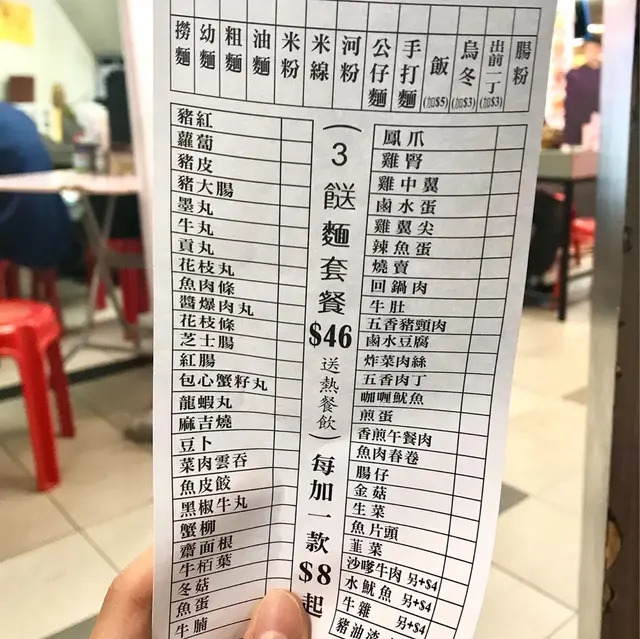 撈麵 幼麵 粗麵 油麵 米粉 米線 河粉 公仔麵 手打麵 飯(加$5) 烏冬(加$3) 出前一丁(加$3) 腸粉
豬紅
蘿蔔
豬皮
豬大腸
墨丸
牛丸
貢丸
花枝丸
魚肉條
醬爆肉丸
花枝條
芝士腸
紅腸
包心蟹籽丸
龍蝦丸
麻吉燒
豆卜
菜肉雲吞
魚皮餃
黑椒牛丸
蟹柳
齋面根
牛栢葉
冬菇
魚蛋
牛腩
(3餸麵套餐$46送熱餐飲)每加一款$8起
鳳爪
雞腎
雞中翼
鹵水蛋
雞翼尖
辣魚蛋
燒賣
回鍋肉
牛肚
五香豬頸肉
鹵水豆腐
炸菜肉絲
五香肉丁
咖喱魷魚
煎蛋
香煎午餐肉
魚肉春卷
腸仔
金菇
生菜
魚片頭
韮菜
沙嗲牛肉 另+$4
水魷魚 另+$4
牛雜 另+$4
豬油渣